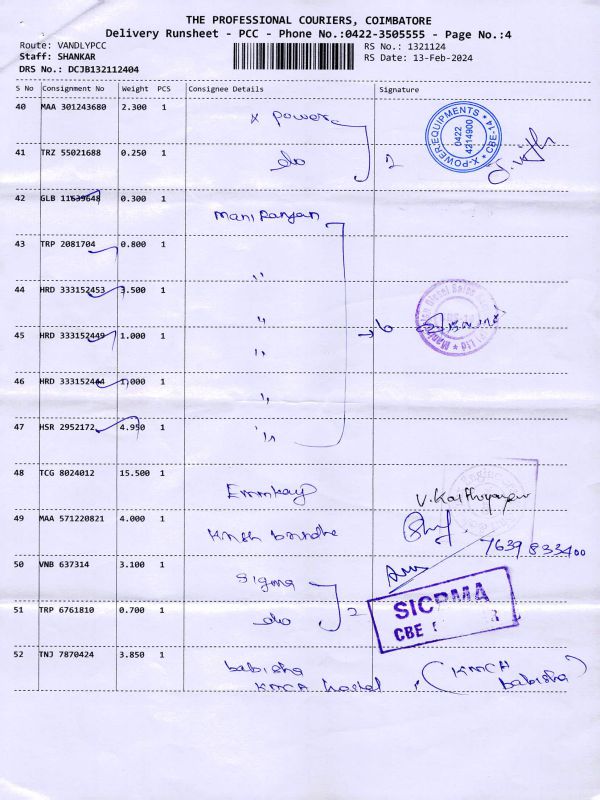 THE PROFESSIONAL COURIERS, COIMBATORE
Delivery Runsheet - PCC - Phone No.:0422-3505555 - Page No.:4
Route: VANDLYPCC RS No.: 1321124
Staff: SHANKAR RS Date: 13-Feb-2024
DRS No.: DCJB132112404
S No Consignment No Weight PCS Consignee Details Signature
40 MAA 301243680 2.300 1 X power
X-POWER EQUIPMENTS * CBE-14 *
0422
4214900
41 TRZ 55021688 0.250 1 do 2
42 GLB 11639648 0.300 1 Mani Ranjan
43 TRP 2081704 0.800 1 "
44 HRD 333152453 .500 1 "
45 HRD 333152449 1.000 1 " 6
46 HRD 333152444 1.000 1 "
47 HSR 2952172 4.950 1 "
48 TCG 8024012 15.500 1 Emmkay
49 MAA 571220821 4.000 1
7639833400
50 VNB 637314 3.100 1 Sigma
51 TRP 6761810 0.700 1 do 2
CBE
52 TNJ 7870424 3.850 1 babisha
KMCH hostel (KMCH babisha)